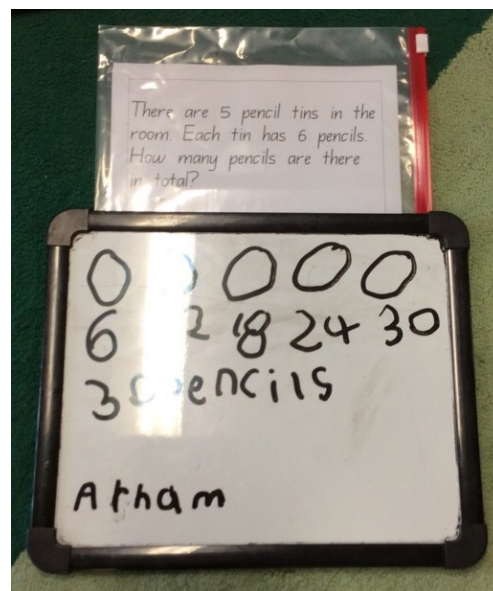 There are 5 pencil tins in the
room. Each tin has 6 pencils.
How many pencils are there
in total?
6 12 18 24 30
30 pencils
Arham